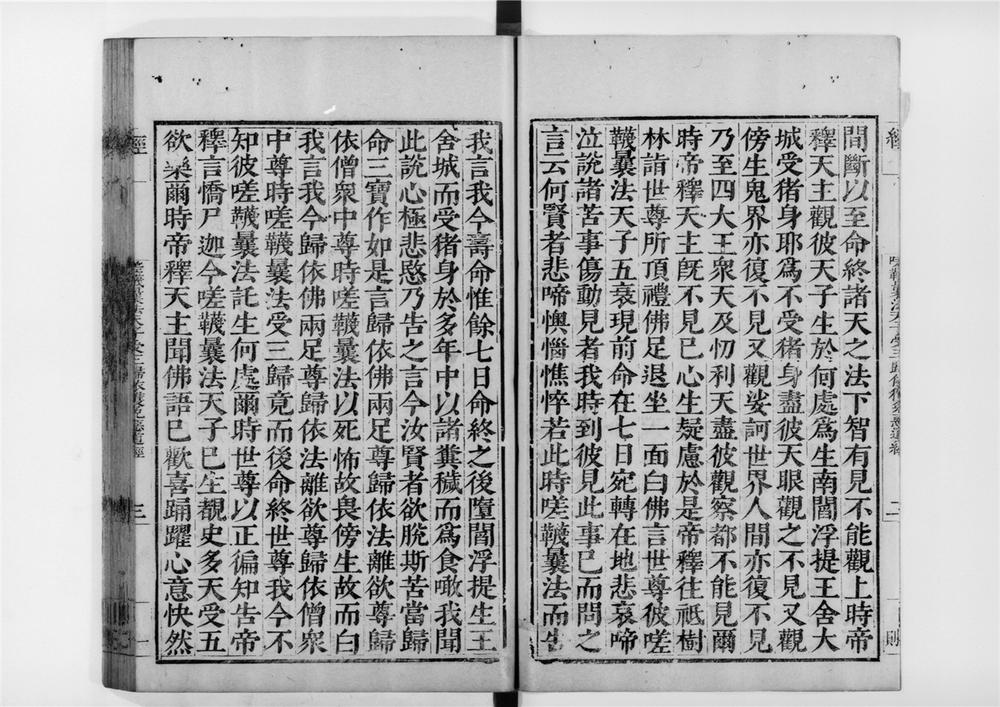 間斷以至命終諸天之法下智有見不能觀上時帝
釋天主觀彼天子生於何處爲生南閻浮提王舍大
城受猪身耶爲不受猪身盡彼天眼觀之不見又觀
傍生鬼界亦復不見又觀娑訶世界人間亦復不見
乃至四大王衆天及忉利天盡彼觀察都不能見爾
時帝釋天主旣不見已心生疑慮於是帝釋往祇樹
林詣世尊所頂禮佛足退坐一面白佛言世尊彼嗟
韈曩法天子五衰現前命在七日宛轉在地悲哀啼
泣說諸苦事傷動見者我時到彼見此事已而問之
言云何賢者悲啼懊惱憔悴若此時嗟韈曩法而告
經
二
我言我今壽命惟餘七日命終之後墮閻浮提生王
舍城而受猪身於多年中以諸糞穢而爲食噉我聞
此說心極悲愍乃告之言今汝賢者欲脫斯苦當歸
命三寶作如是言歸依佛兩足尊歸依法離欲尊歸
依僧衆中尊時嗟韈曩法以死怖故畏傍生故而白
我言我今歸依佛兩足尊歸依法離欲尊歸依僧衆
中尊時嗟韈曩法受三歸竟而後命終世尊我今不
知彼嗟韈曩法託生何處爾時世尊以正徧知告帝
釋言憍尸迦今嗟韈曩法天子已生覩史多天受五
欲樂爾時帝釋天主聞佛語已歡喜踊躍心意快然
經
三